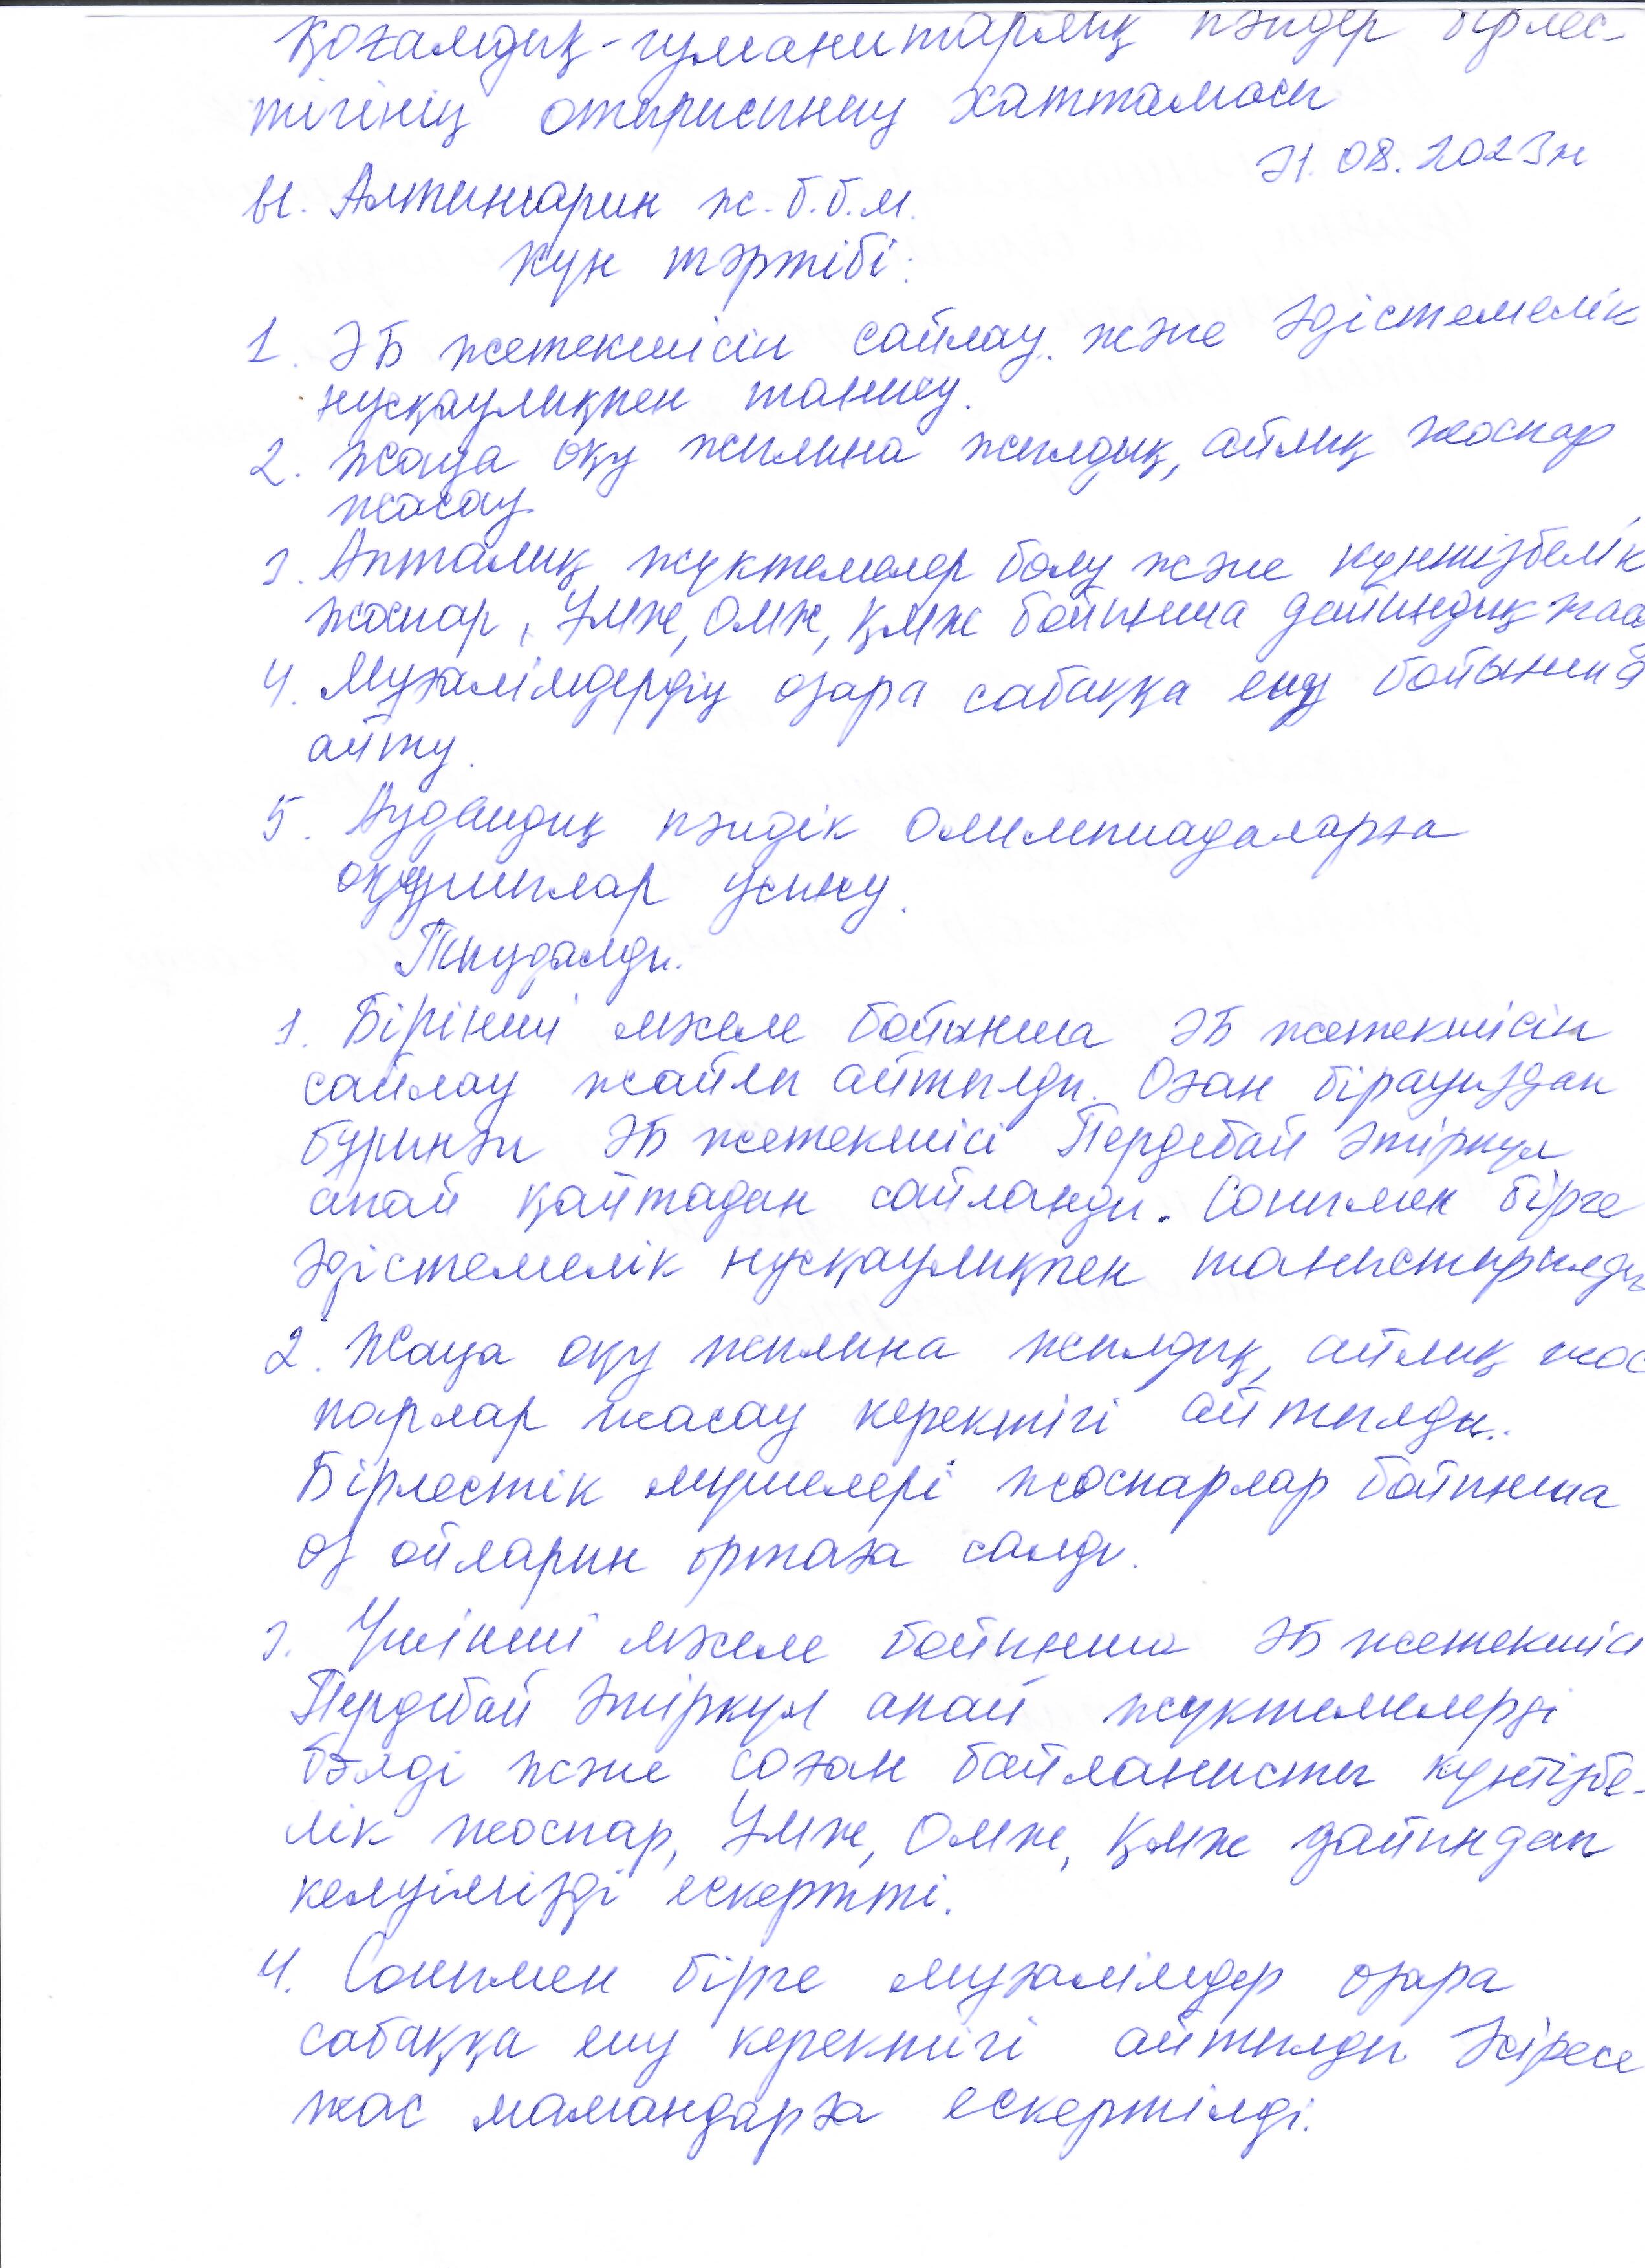 Қоғамдық-гуманитарлық пәндер бірлес-
тігінің отырысының хаттамасы
31.08.2023ж
Ы. Алтынсарин ж.б.б.м.
Күн тәртібі:
1. ӘБ жетекшісін сайлау және әдістемелік
нұсқаулықпен танысу.
2. Жаңа оқу жылына жылдық, айлық жоспар
жасау.
3. Апталық жүктемелер бөлу және күнтізбелік
жоспар, ҰМЖ, ОМЖ, ҚМЖ бойынша дайындық жаса
4. Мұғалімдердің өзара сабаққа ену бойынша
айту.
5. Аудандық пәндік олимпиадаларға
оқушылар ұсыну.
Тыңдалды.
1. Бірінші мәселе бойынша ӘБ жетекшісін
сайлау жайлы айтылды. Оған бірауыздан
бұрынғы ӘБ жетекшісі Пердебай Әміркүл
апай қайтадан сайланды. Сонымен бірге
әдістемелік нұсқаулықпен таныстырылды
2. Жаңа оқу жылына жылдық, айлық жос
парлар жасау керектігі айтылды.
Бірлестік мүшелері жоспарлар бойынша
өз ойларын ортаға салды.
3. Үшінші мәселе бойынша ӘБ жетекшісі
Пердебай Әміркүл апай жүктемелерді
бөлді және соған байланысты күнтізбе-
лік жоспар, ҰМЖ, ОМЖ, ҚМЖ дайындап
келуімізді ескертті.
4. Сонымен бірге мұғалімдер өзара
сабаққа ену керектігі айтылды Әсіресе
жас мамандарға ескертілді.